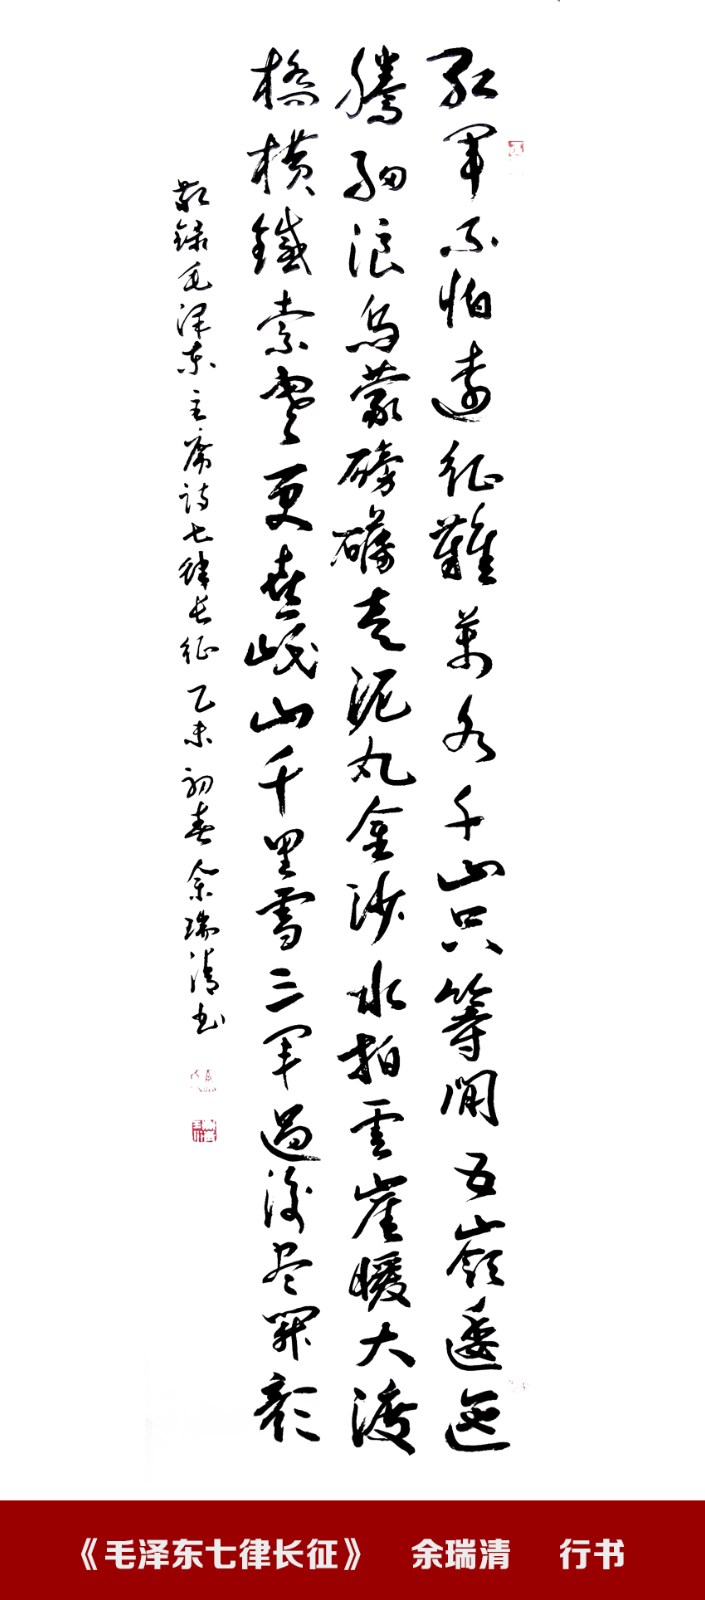 红军不怕远征难萬水千山只等闲五嶺逶迤
腾细浪乌蒙磅礴走泥丸金沙水拍雲崖暖大渡
橋横鐵索寒更喜岷山千里雪三军過後尽開颜
敬錄毛泽东主席詩七律长征 乙未初春余瑞清书
《毛泽东七律长征》 余瑞清 行书